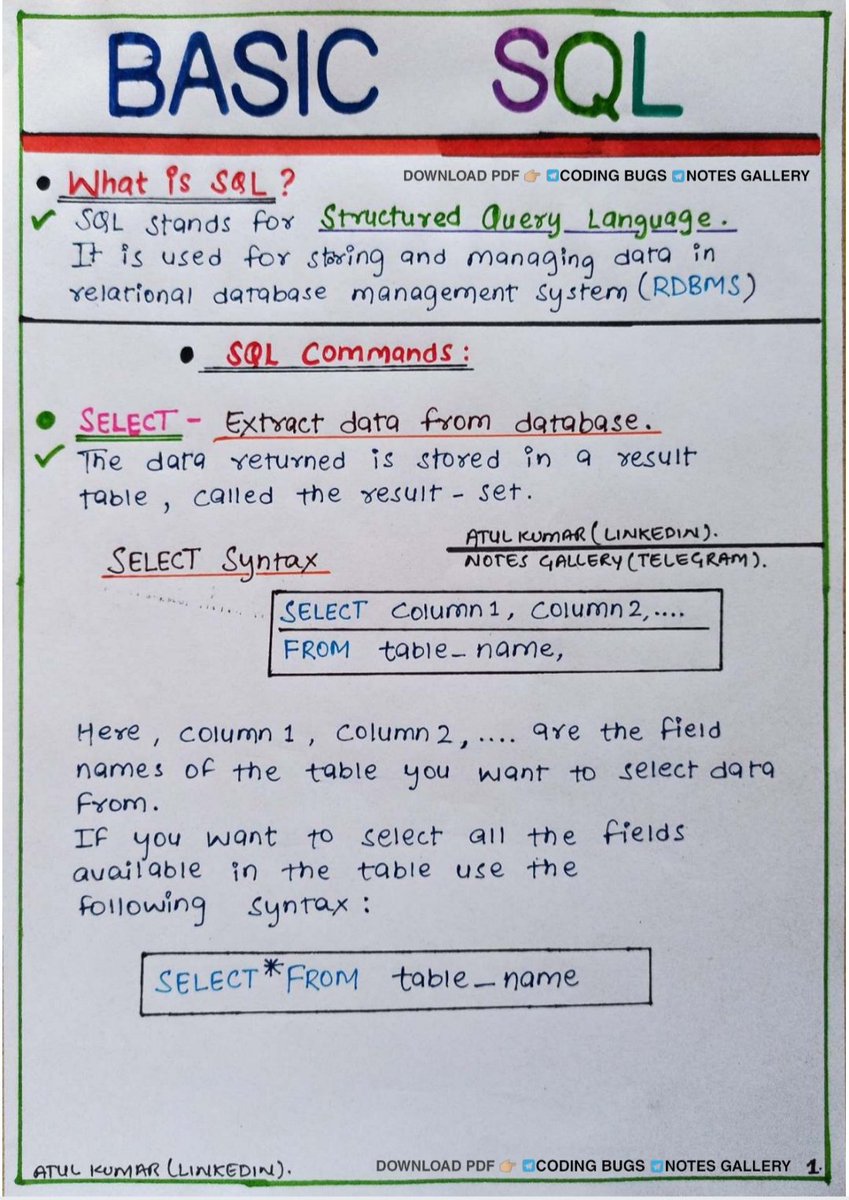 BASIC SQL
DOWNLOAD PDF 👉🏼 CODING BUGS NOTES GALLERY
• What is SQL ?
✓ SQL stands for Structured Query Language.
It is used for storing and managing data in
relational database management system (RDBMS)
• SQL Commands :
• SELECT - Extract data from database.
✓ The data returned is stored in a result
table, called the result - set.
ATUL KUMAR (LINKEDIN).
SELECT Syntax
NOTES GALLERY (TELEGRAM).
SELECT column1, column2,....
FROM table_name,
Here, column1, column2, .... are the field
names of the table you want to select data
from.
If you want to select all the fields
available in the table use the
following syntax :
SELECT * FROM table_name
ATUL KUMAR (LINKEDIN).
DOWNLOAD PDF 👉🏼 CODING BUGS NOTES GALLERY 1.